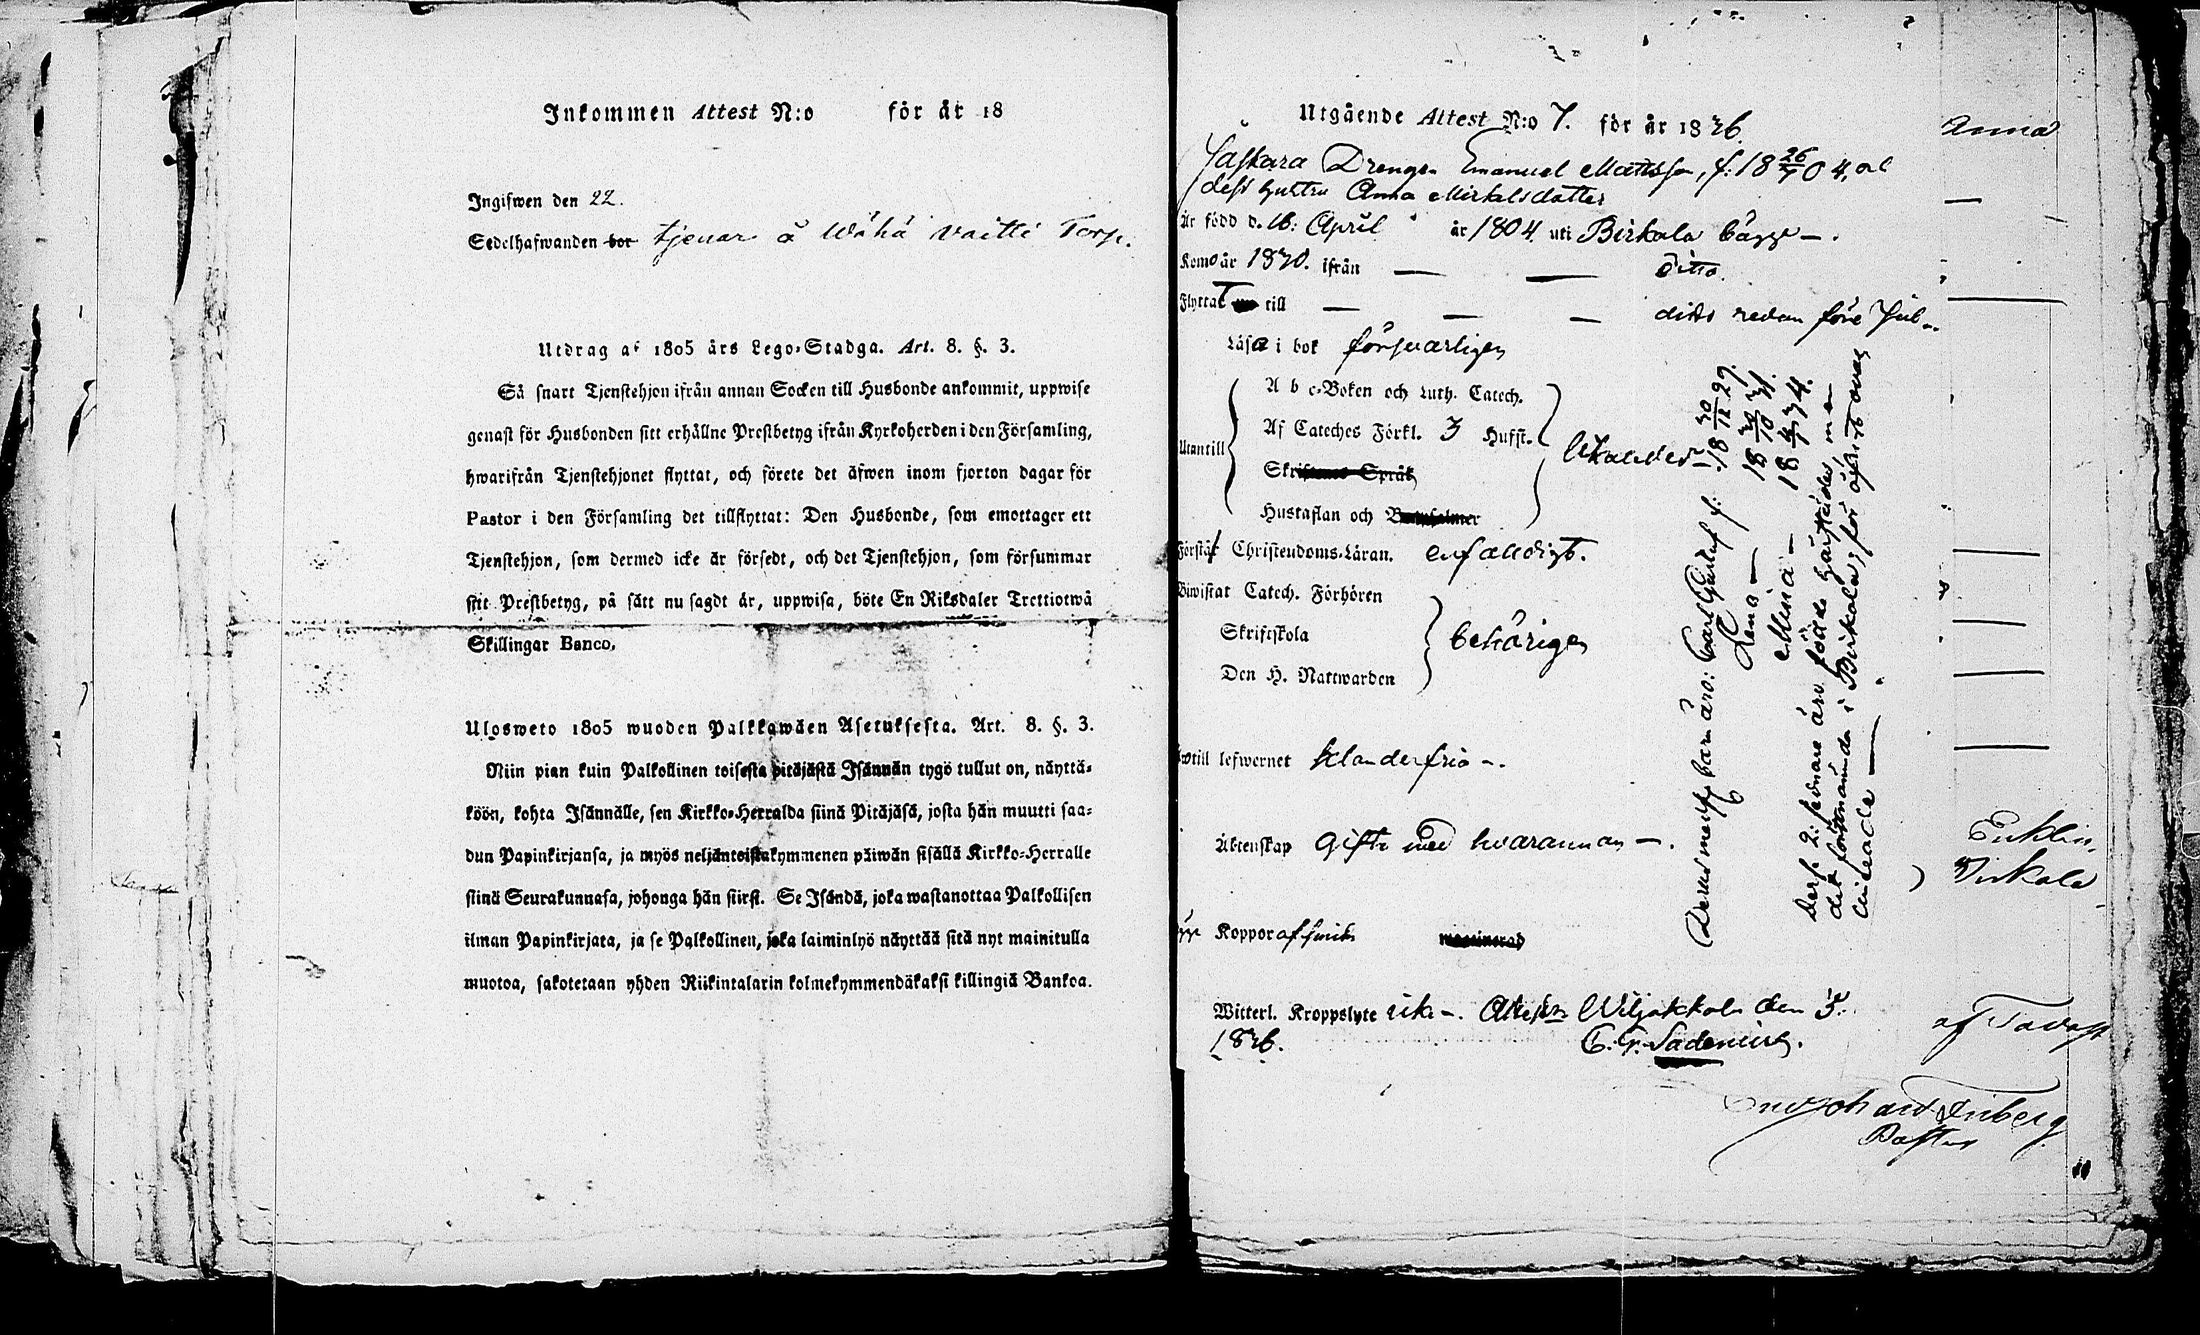 Inkommen Attest N:o för år 18
Ingifwen den 22.
Sedelhafwanden bor tjenar å Wähä Vaitti Torp.
Utdrag af 1805 års Lego-Stadga. Art. 8. §. 3.
Så snart Tjenstehjon ifrån annan Socken till Husbonde ankommit, uppwise
genast för Husbonden sitt erhållne Prestbetyg ifrån Kyrkoherden i den Församling,
hwarifrån Tjenstehjonet flyttat, och förete det äfwen inom fjorton dagar för
Pastor i den Församling det tillflyttat: Den Husbonde, som emottager ett
Tjenstehjon, som dermed icke är försedt, och det Tjenstehjon, som försummar
sitt Prestbetyg, på sätt nu sagdt är, uppwisa, böte En Riksdaler Trettiotwå
Skillingar Banco.
Ulosweto 1805 wuoden Palkkawäen Asetuksesta. Art. 8. §. 3.
Niin pian kuin Palkollinen toisesta pitäjästä Isännän tygö tullut on, näyttä-
köön, kohta Isännälle, sen Kirkko-Herralda siinä Pitäjäsä, josta hän muutti saa-
dun Papinkirjansa, ja myös neljäntoistakymmenen päiwän sisällä Kirkko-Herralle
siinä Seurakunnasa, johonga hän siirst. Se Isändä, joka wastanottaa Palkollisen
ilman Papinkirjata, ja se Palkollinen, joka laiminlyö näyttää sitä nyt mainitulla
muotoa, sakotetaan yhden Riikintalarin kolmekymmendäkaksi killingiä Bankoa.
Utgående Attest N:o 7. för år 1836
Drengen Emanuel Mattsson, f. 18 26/7 04, och
dess hustru Anna Mickelsdotter
Är född d. 16: April år 1804. uti Birkala Capp —.
Kom år 1830. ifrån — — ditto.
Flyttat till — — — dito redan före Jul
Läsa i bok försvarligen
Utantill
A b c-Boken och Luth. Catech.
Af Cateches Förkl. 3 Hufst.
Skriftenes Språk
Hustaflan och
Förstå Christendoms-Läran. enfaldigt.
Biwistat Catech. Förhören
Skriftskola
Den H. Nattwarden
behörigen
till lefwernet klanderfria —.
Äktenskap Gifta med hvarannan —.
Koppor
Witterl. Kroppslyte icke —. Attest Wiljakkala den 3.
1836.
Deras barn äro: Carl Gustaf f: 18 30/12 29.
Lena —
Mina —
Dess 2: sednare äro födde härstädes, men
Anna
Birkala
af Tavast
Pastor